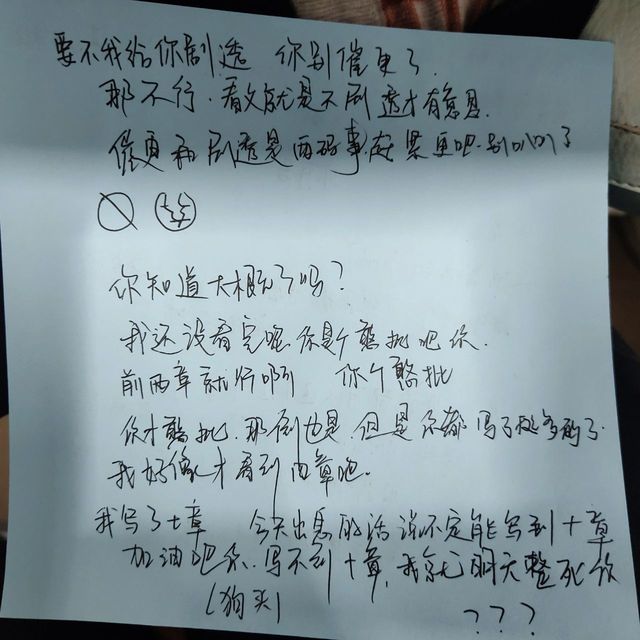 要不我给你剧透 你别催更了.
那不行.看文就是不剧透才有意思.
催更和剧透是两码事.赶紧更吧.别叭叭了
你知道大概了吗?
我还没看完呢.你是个憨批吧你.
前两章就行啊 你个憨批
你才憨批.那倒也是.但是你都写了挺多的了.
我好像才看到四章吧.
我写了七章 今天出息的话说不定能写到十章
加油吧你.写不到十章,我就明天整死你
(狗头) ???